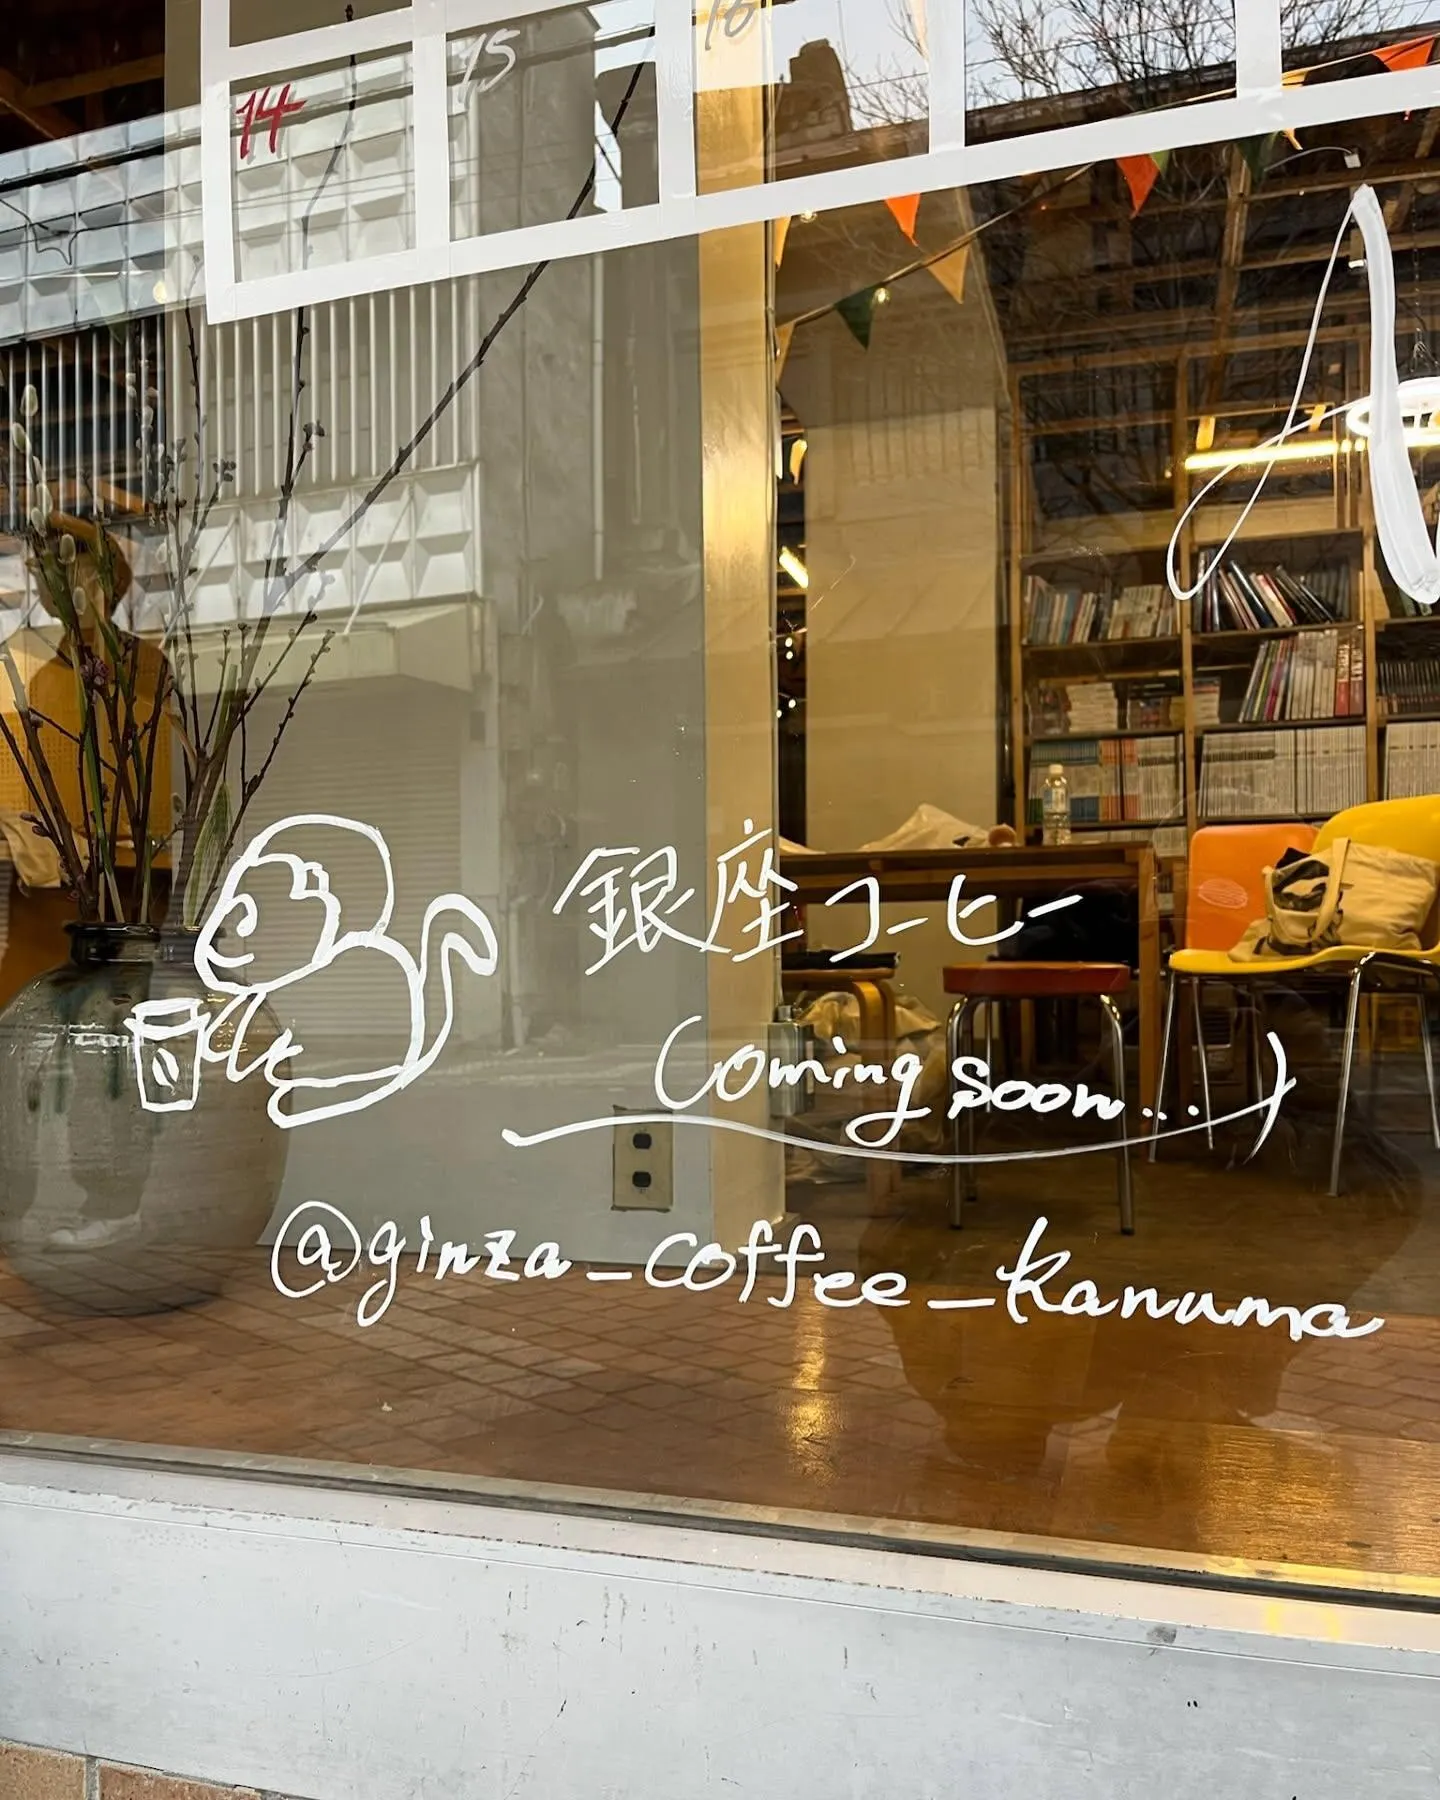 14 15 16
銀座コーヒー
(Coming soon...)
@ginza_coffee_kanuma